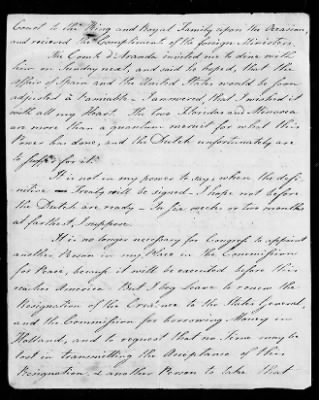 Court to the King and Royal Family upon the Occasion,
and recieved the Compliments of the foreign Ministers.
The Comte d'Aranda invited me to dine with
him on Sunday next, and said he hoped, that the
affair of Spain and the United States would be soon
adjusted à l'amiable — I answered, that I wished it
with all my Heart. The two Floridas and Minorca
are more than a quantum meruit for what this
Power has done, and the Dutch unfortunately are
to suffer for it.
It is not in my power to say, when the defi-
nitive Treaty will be signed. I hope not before
the Dutch are ready — In six weeks or two months
at farthest, I suppose.
It is no longer necessary for Congress to appoint
another Person in my Place in the Commission
for Peace, because it will be executed before this
reaches America. But I beg Leave to renew the
Resignation of the Credence to the States General,
and the Commission for borrowing Money in
Holland, and to request that no Time may be
lost in transmitting the Acceptance of this
Resignation, & another Person to take that